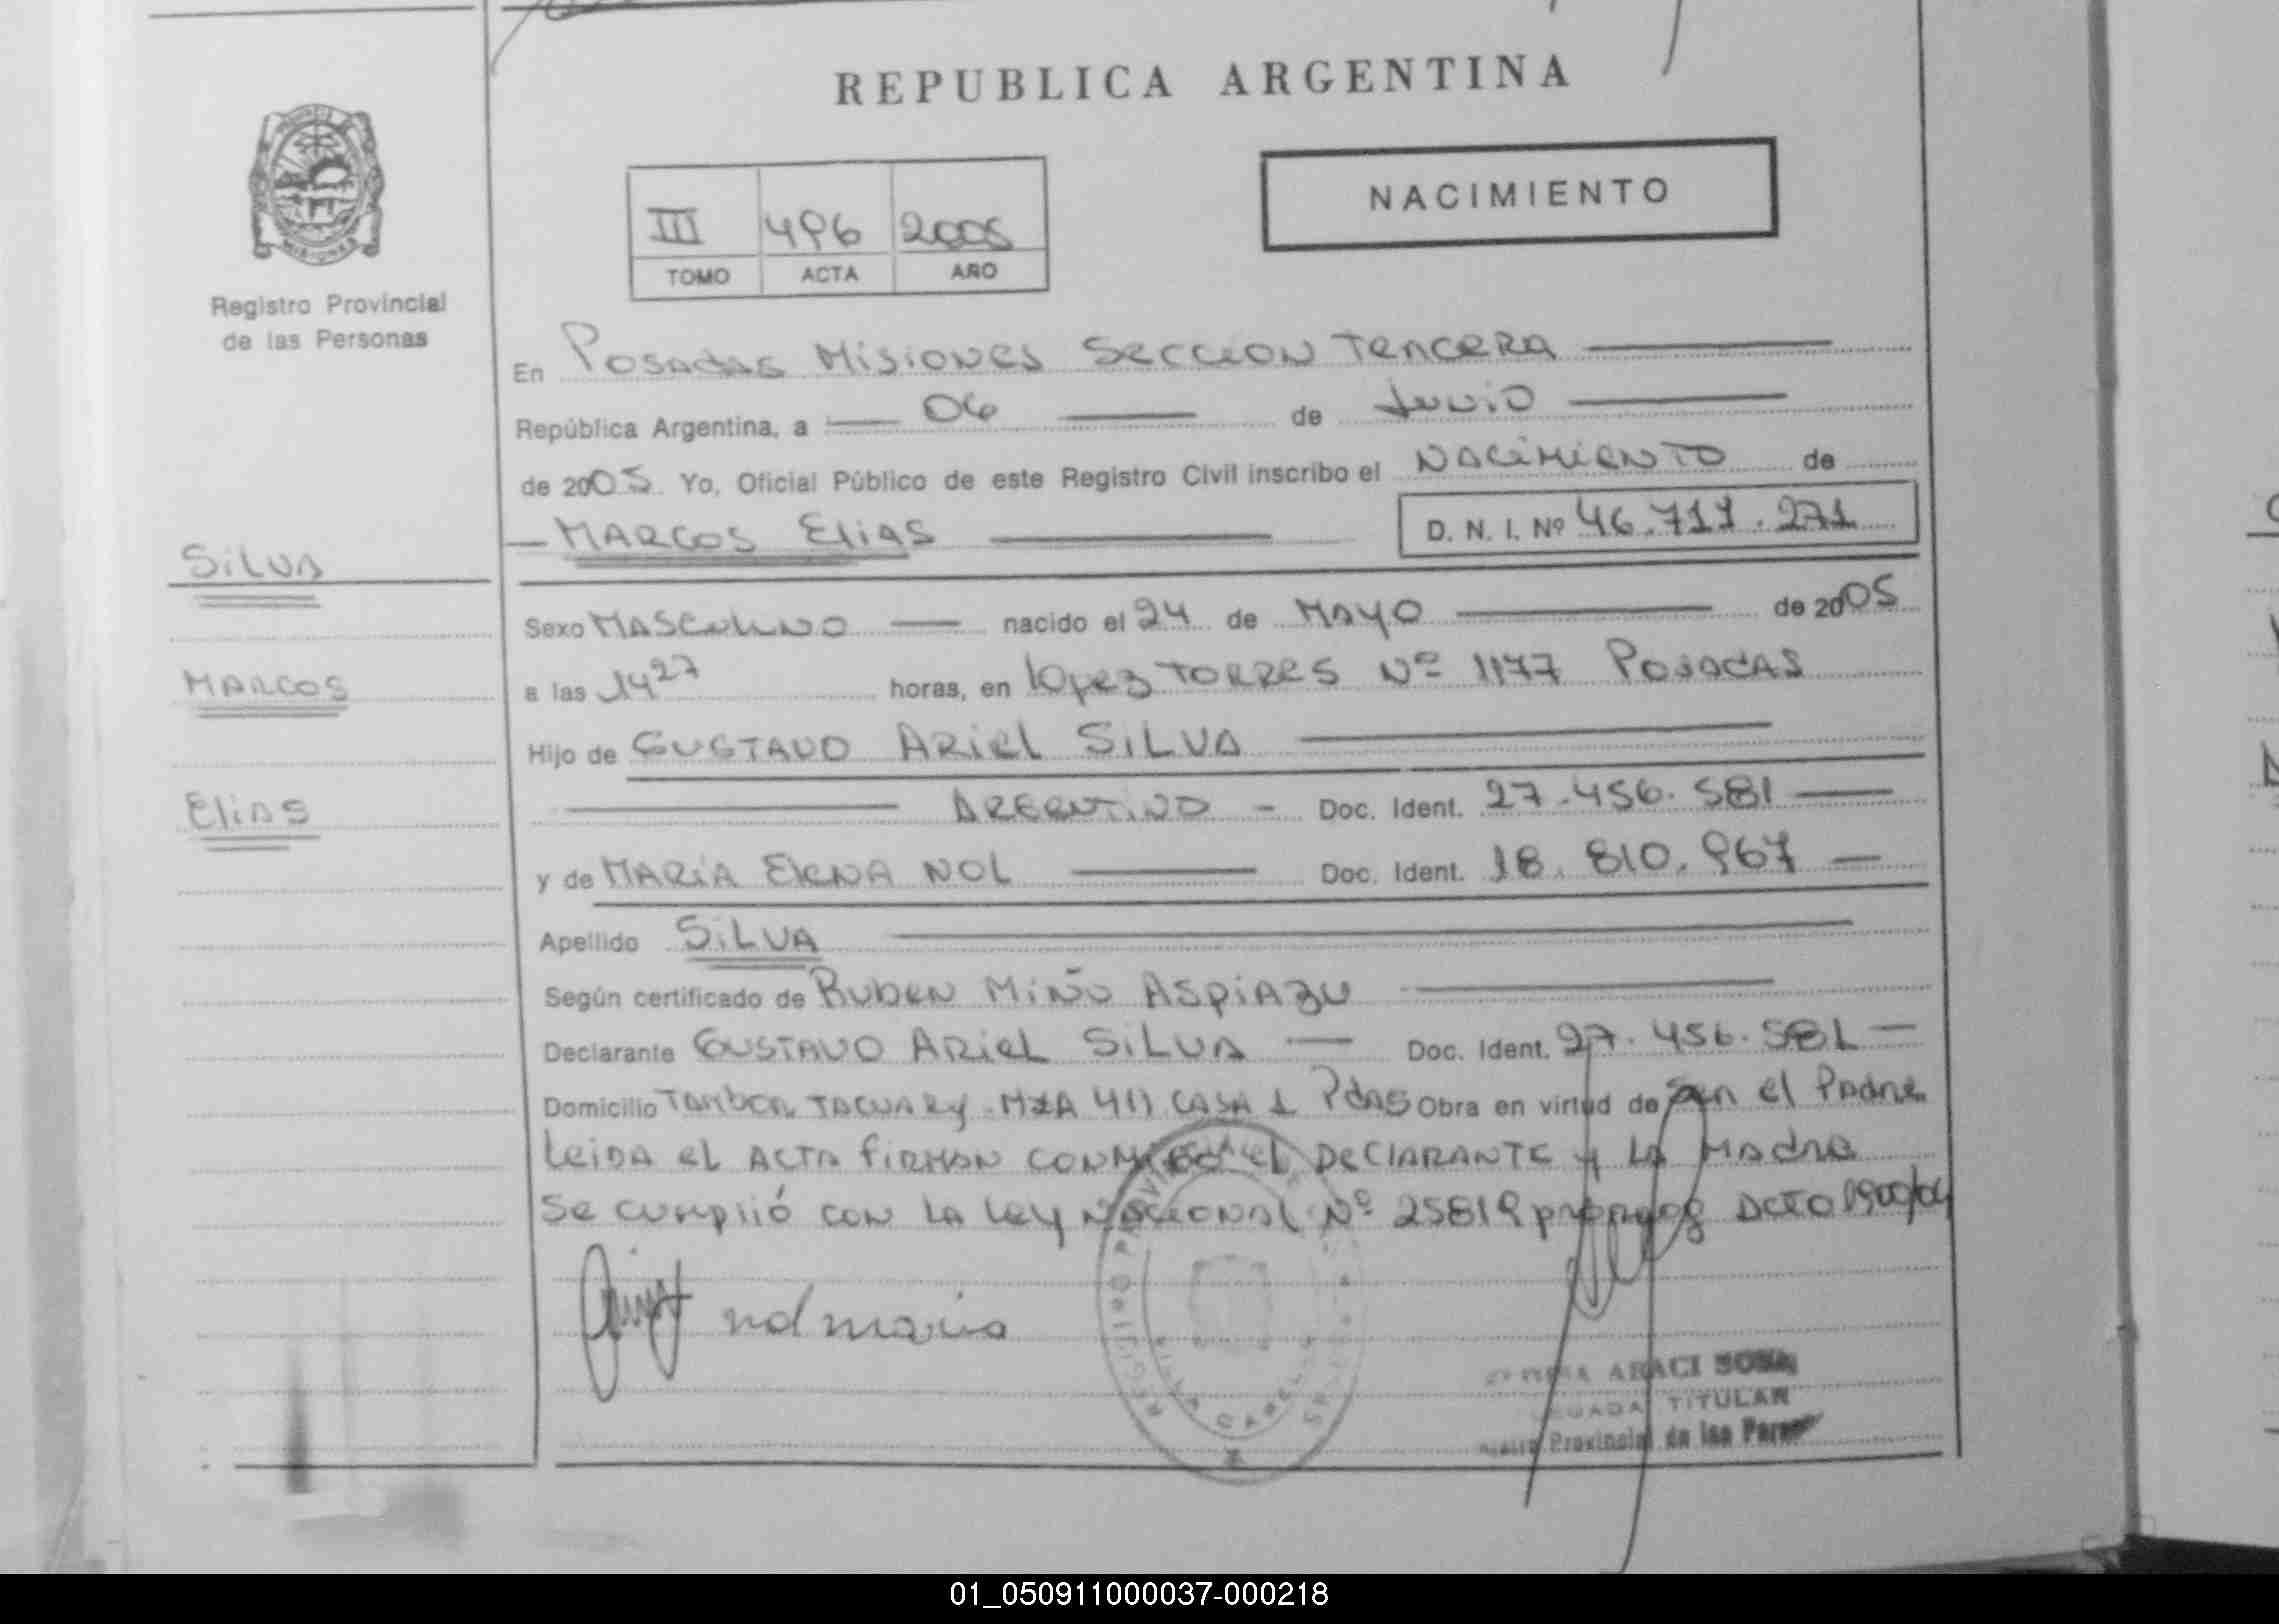 REPUBLICA ARGENTINA
NACIMIENTO
III 496 2005
TOMO ACTA AÑO
MISIONES
Registro Provincial
de las Personas
En Posadas Misiones Seccion Tercera
República Argentina, a 06 de Junio
de 2005 Yo, Oficial Público de este Registro Civil inscribo el Nacimiento de
Marcos Elias
D. N. I. Nº 46.717.271
Silva
Marcos
Elias
Sexo Masculino nacido el 24 de Mayo de 2005
a las 14 27 horas, en Lopez Torres Nº 1177 Posadas
Hijo de Gustavo Ariel Silva
Argentino - Doc. Ident. 27.456.581
y de Maria Elena Nol Doc. Ident. 18.810.967
Apellido Silva
Según certificado de Ruben Miño Aspiazu
Declarante Gustavo Ariel Silva Doc. Ident. 27.456.581
Domicilio Tambor Tacuary Mza 411 Casa 1 Pdas Obra en virtud de ser el Padre
Leida el acta firman conmigo el declarante y la madre
Se cumplió con la Ley Nacional Nº 25819 Dcto 1900/04
nol maria
REGISTRO PROVINCIAL
ARACI SOSA
TITULAR
Provincial de las
01_050911000037-000218